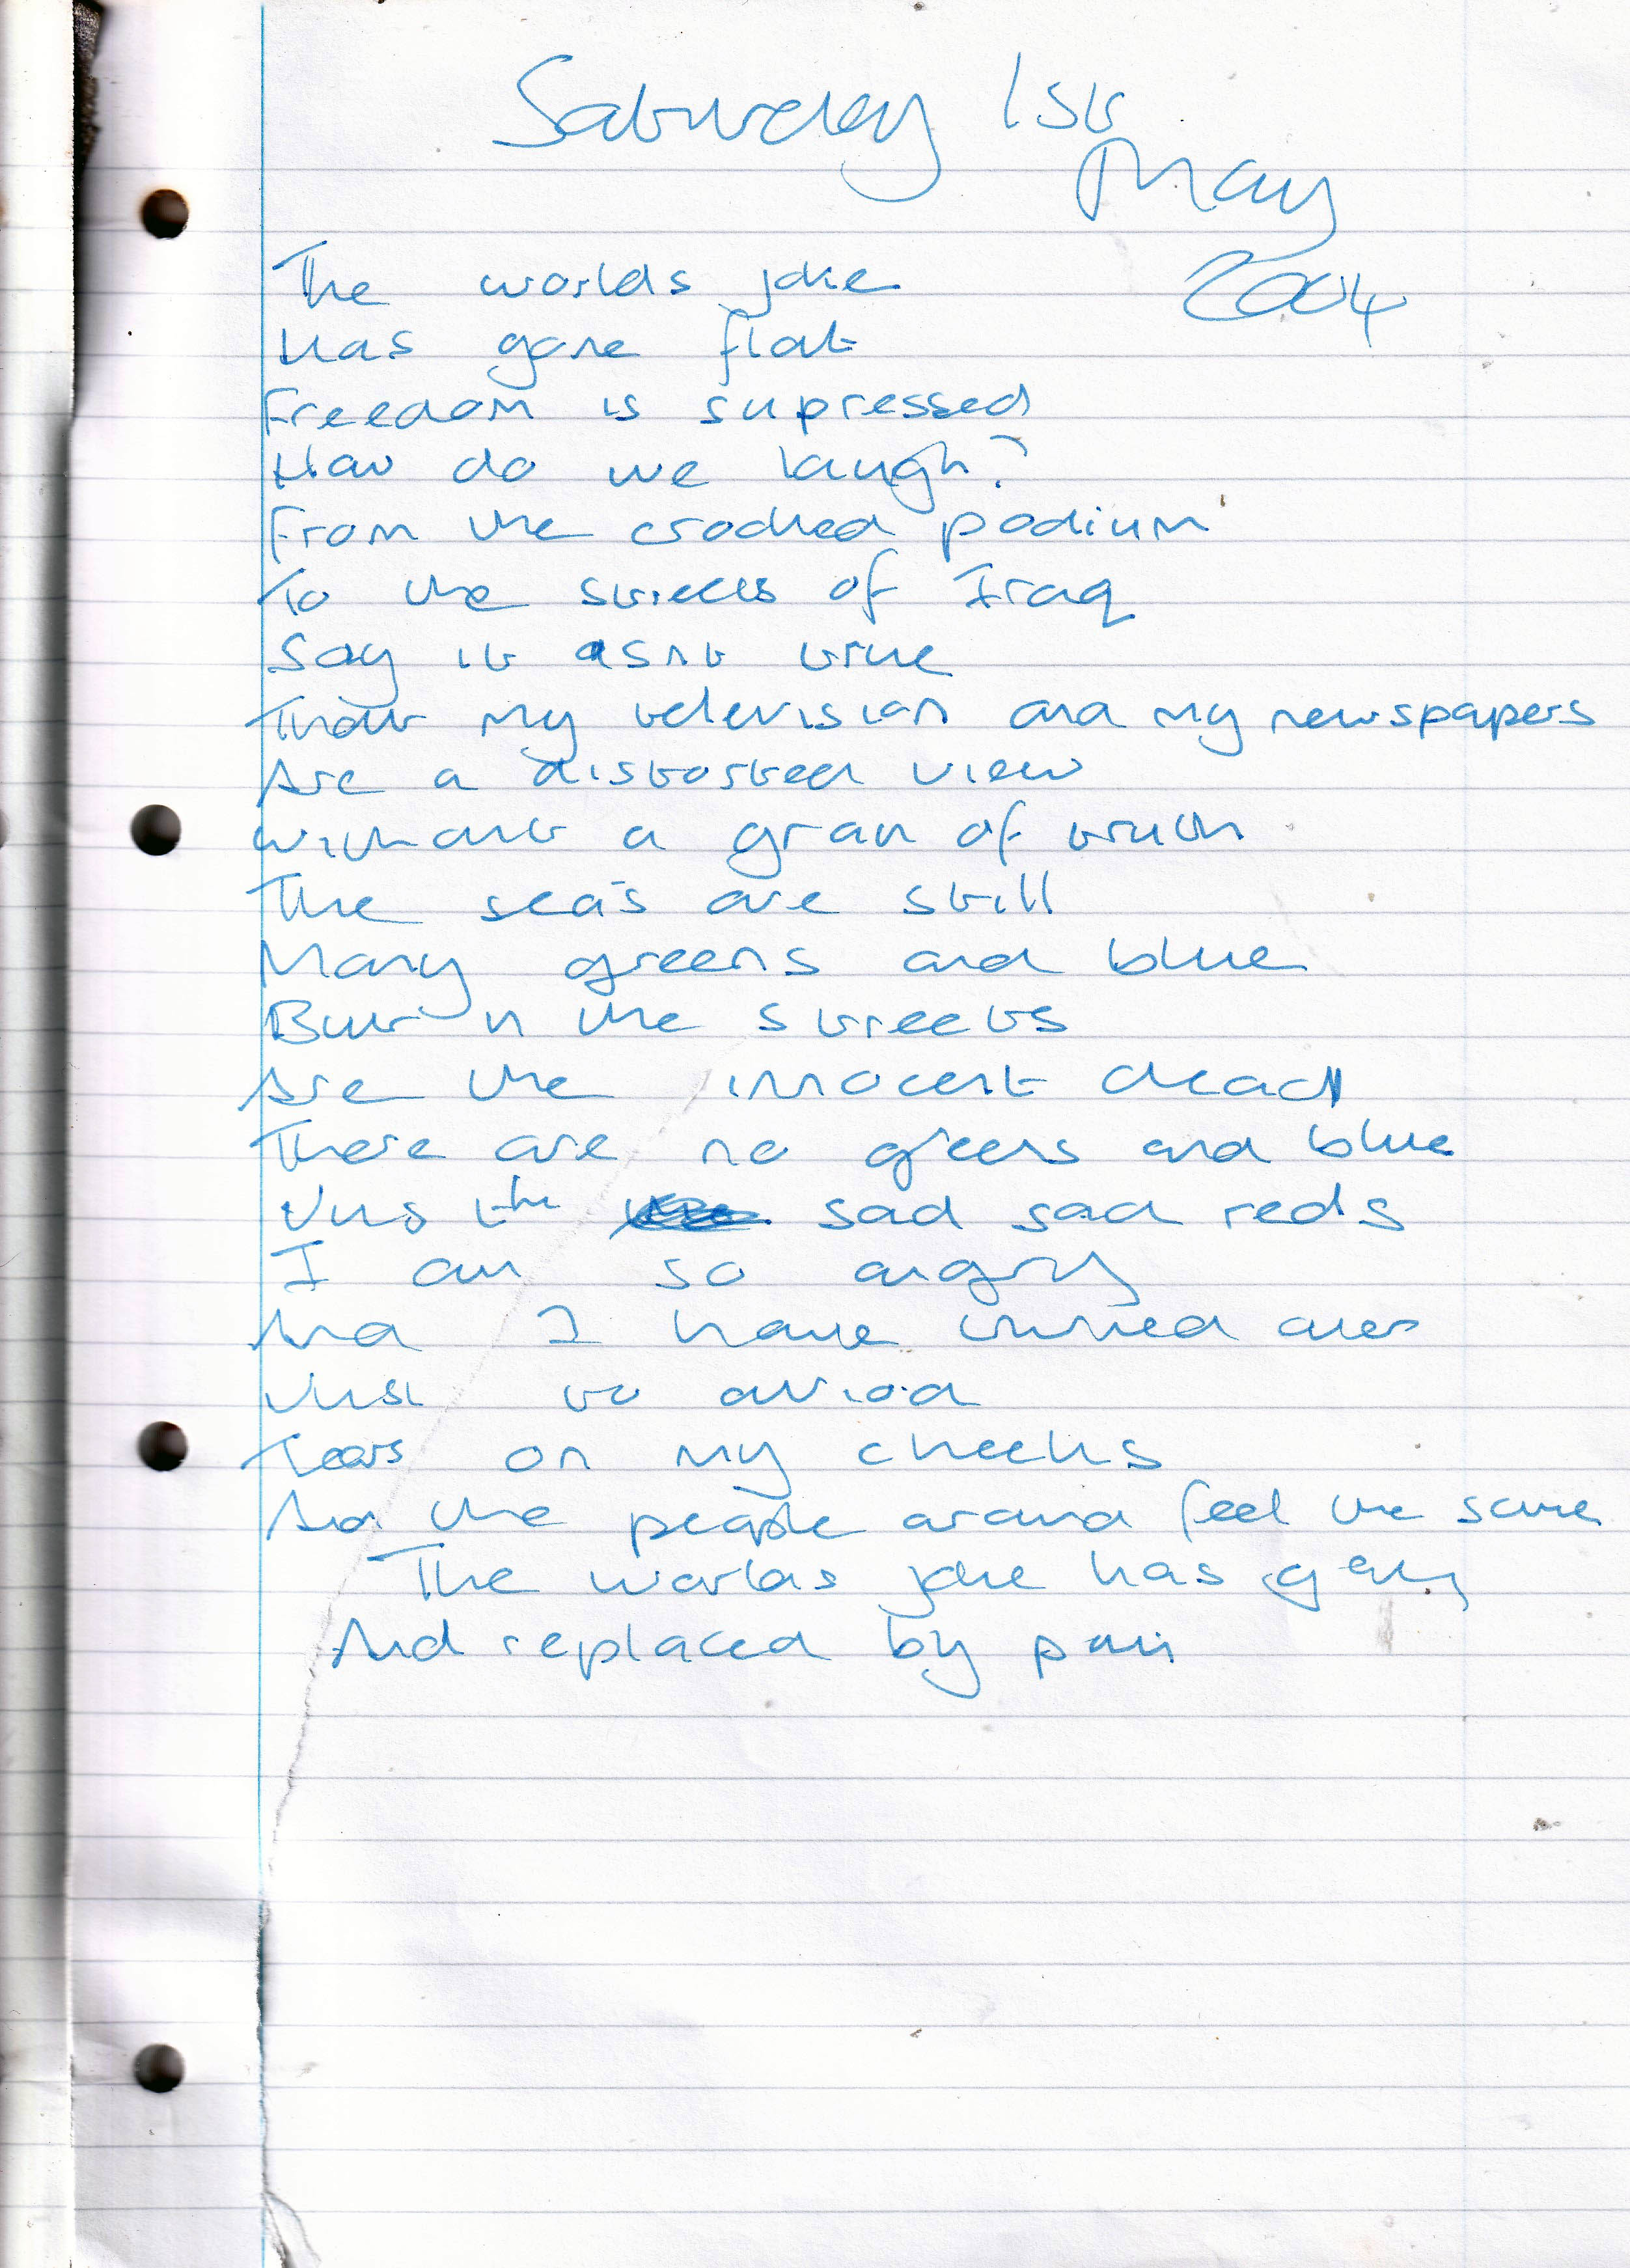 Saturday 1st
May
2004
The worlds joke
has gone flat
Freedom is supressed
How do we laugh?
From the crooked podium
To the streets of Iraq
Say it isnt true
That my television and my newspapers
Are a distorted view
Without a gran of truth
The seas are still
Many greens and blue
But n the streets
Are the innocent dead
There are no greens and blue
Jus the sad sad reds
I am so angry
And I have turned over
Just to aviod
Tears on my cheeks
And the people around feel the same
The worlds joke has
And replaced by pain